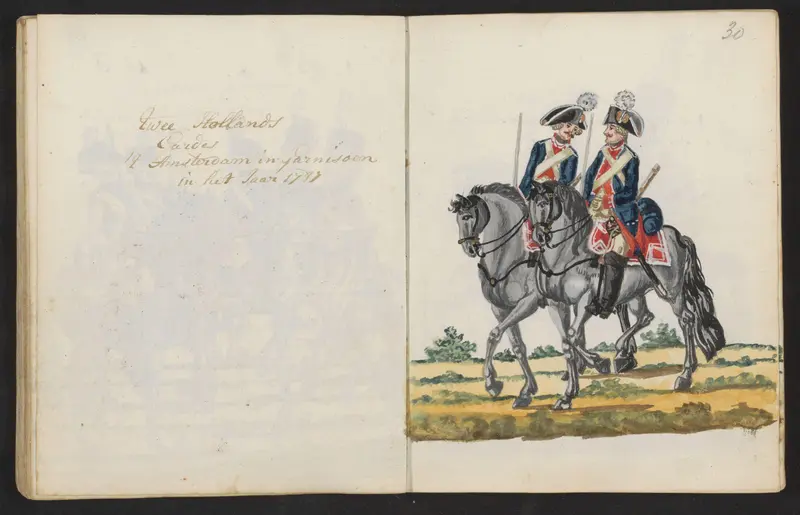 Twee Hollands
Cardes
't Amsterdam in garnisoen
in het Jaar 1787
30